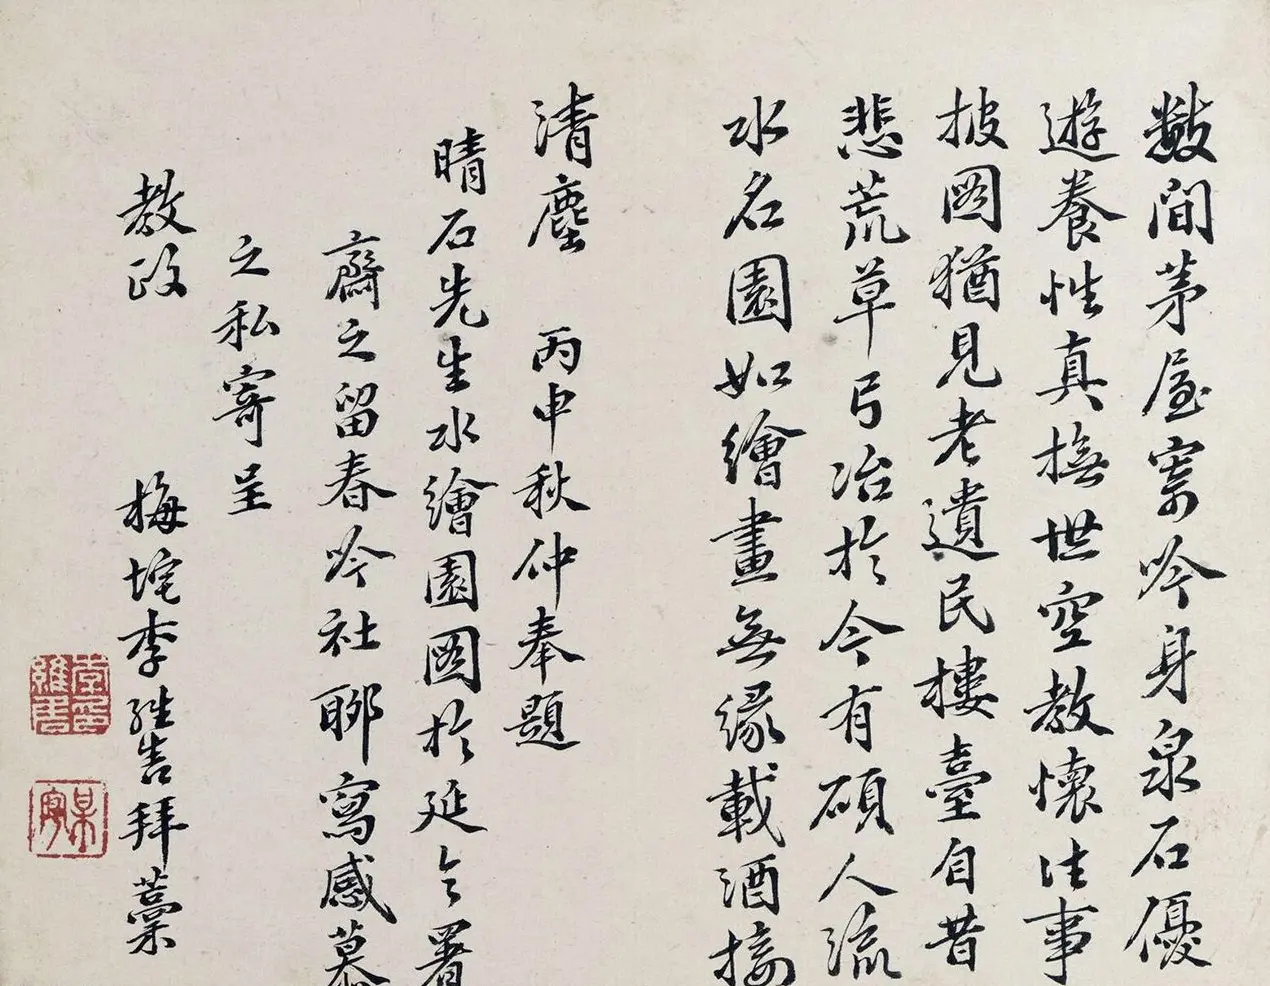 數間茅屋寄吟身泉石優
遊養性真撫世空教懷往事
披圖猶見老遺民樓臺自昔
悲荒草弓冶於今有碩人流
水名園如繪畫無緣載酒接
清塵 丙申秋仲奉題
晴石先生水繪園圖於延令署
齋之留春吟社聊寫感慕
之私寄呈
教政 梅垞李維吉拜藁